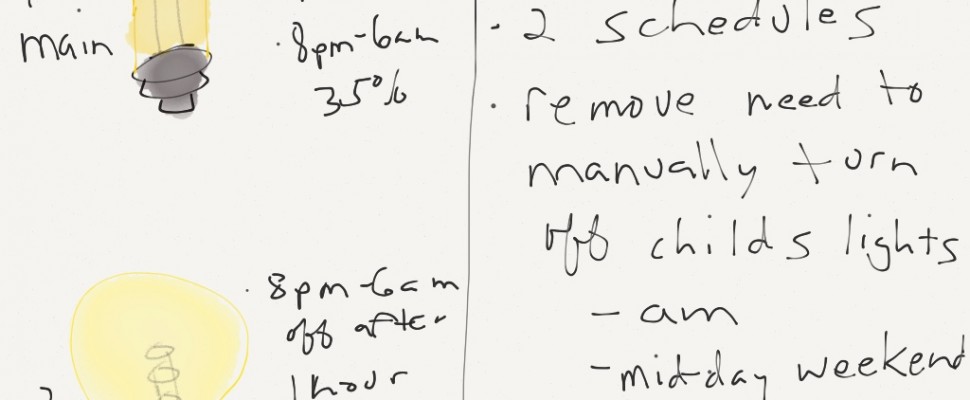 main
· 8pm-6am
35%
· 8pm-6am
off after
1 hour
· 2 schedules
· remove need to
manually turn
off childs lights
- am
- mid-day weekend